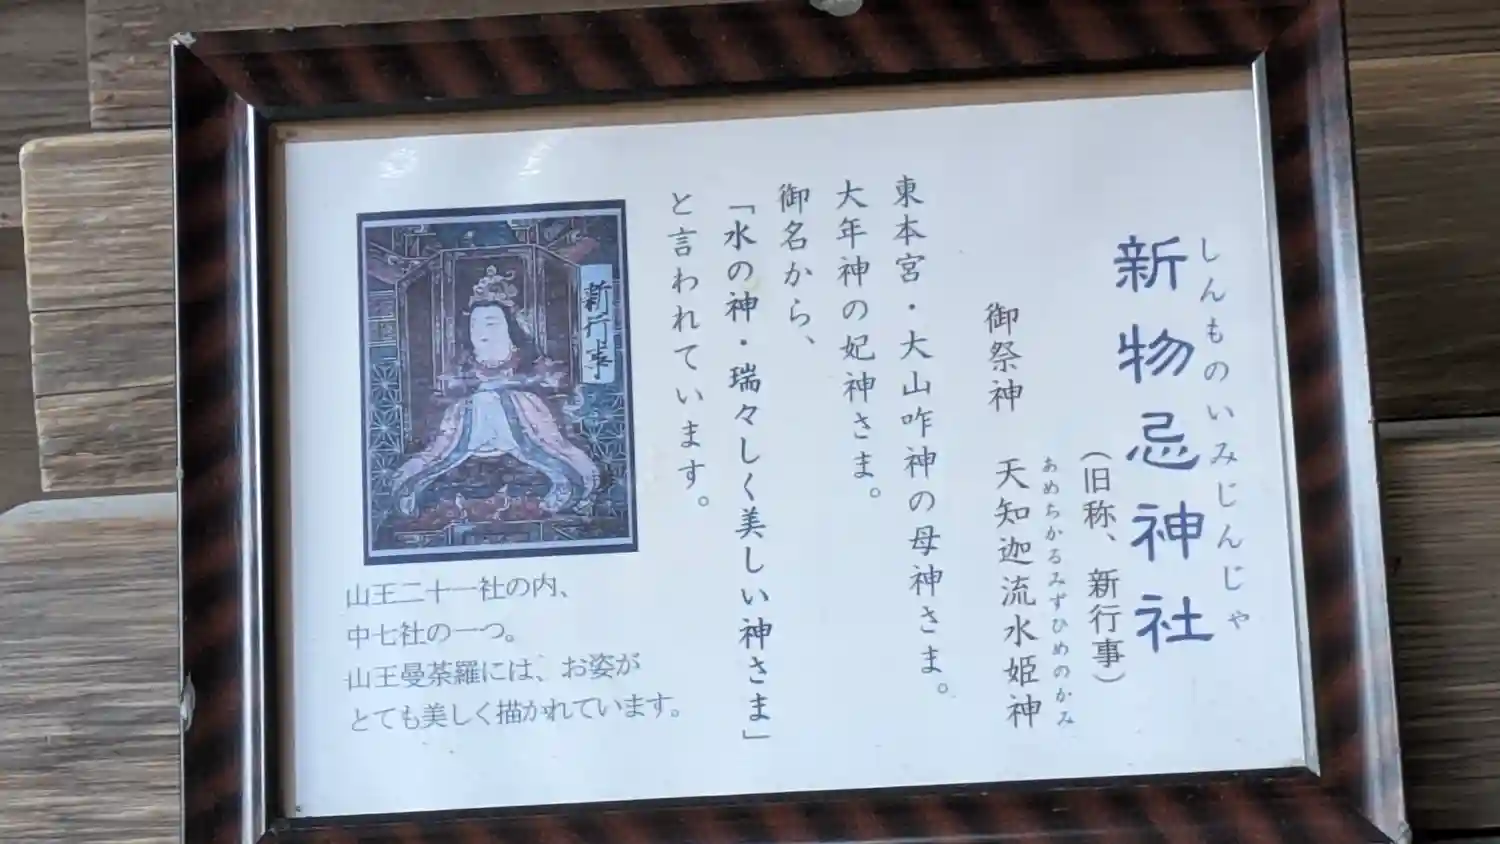 しんものいみじんじゃ
新物忌神社
(旧称、新行事)
あめちかるみずひめのかみ
御祭神 天知迦流水姫神
東本宮・大山咋神の母神さま。
大年神の妃神さま。
御名から、
「水の神・瑞々しく美しい神さま」
と言われています。
新行事
山王二十一社の内、
中七社の一つ。
山王曼荼羅には、お姿が
とても美しく描かれています。